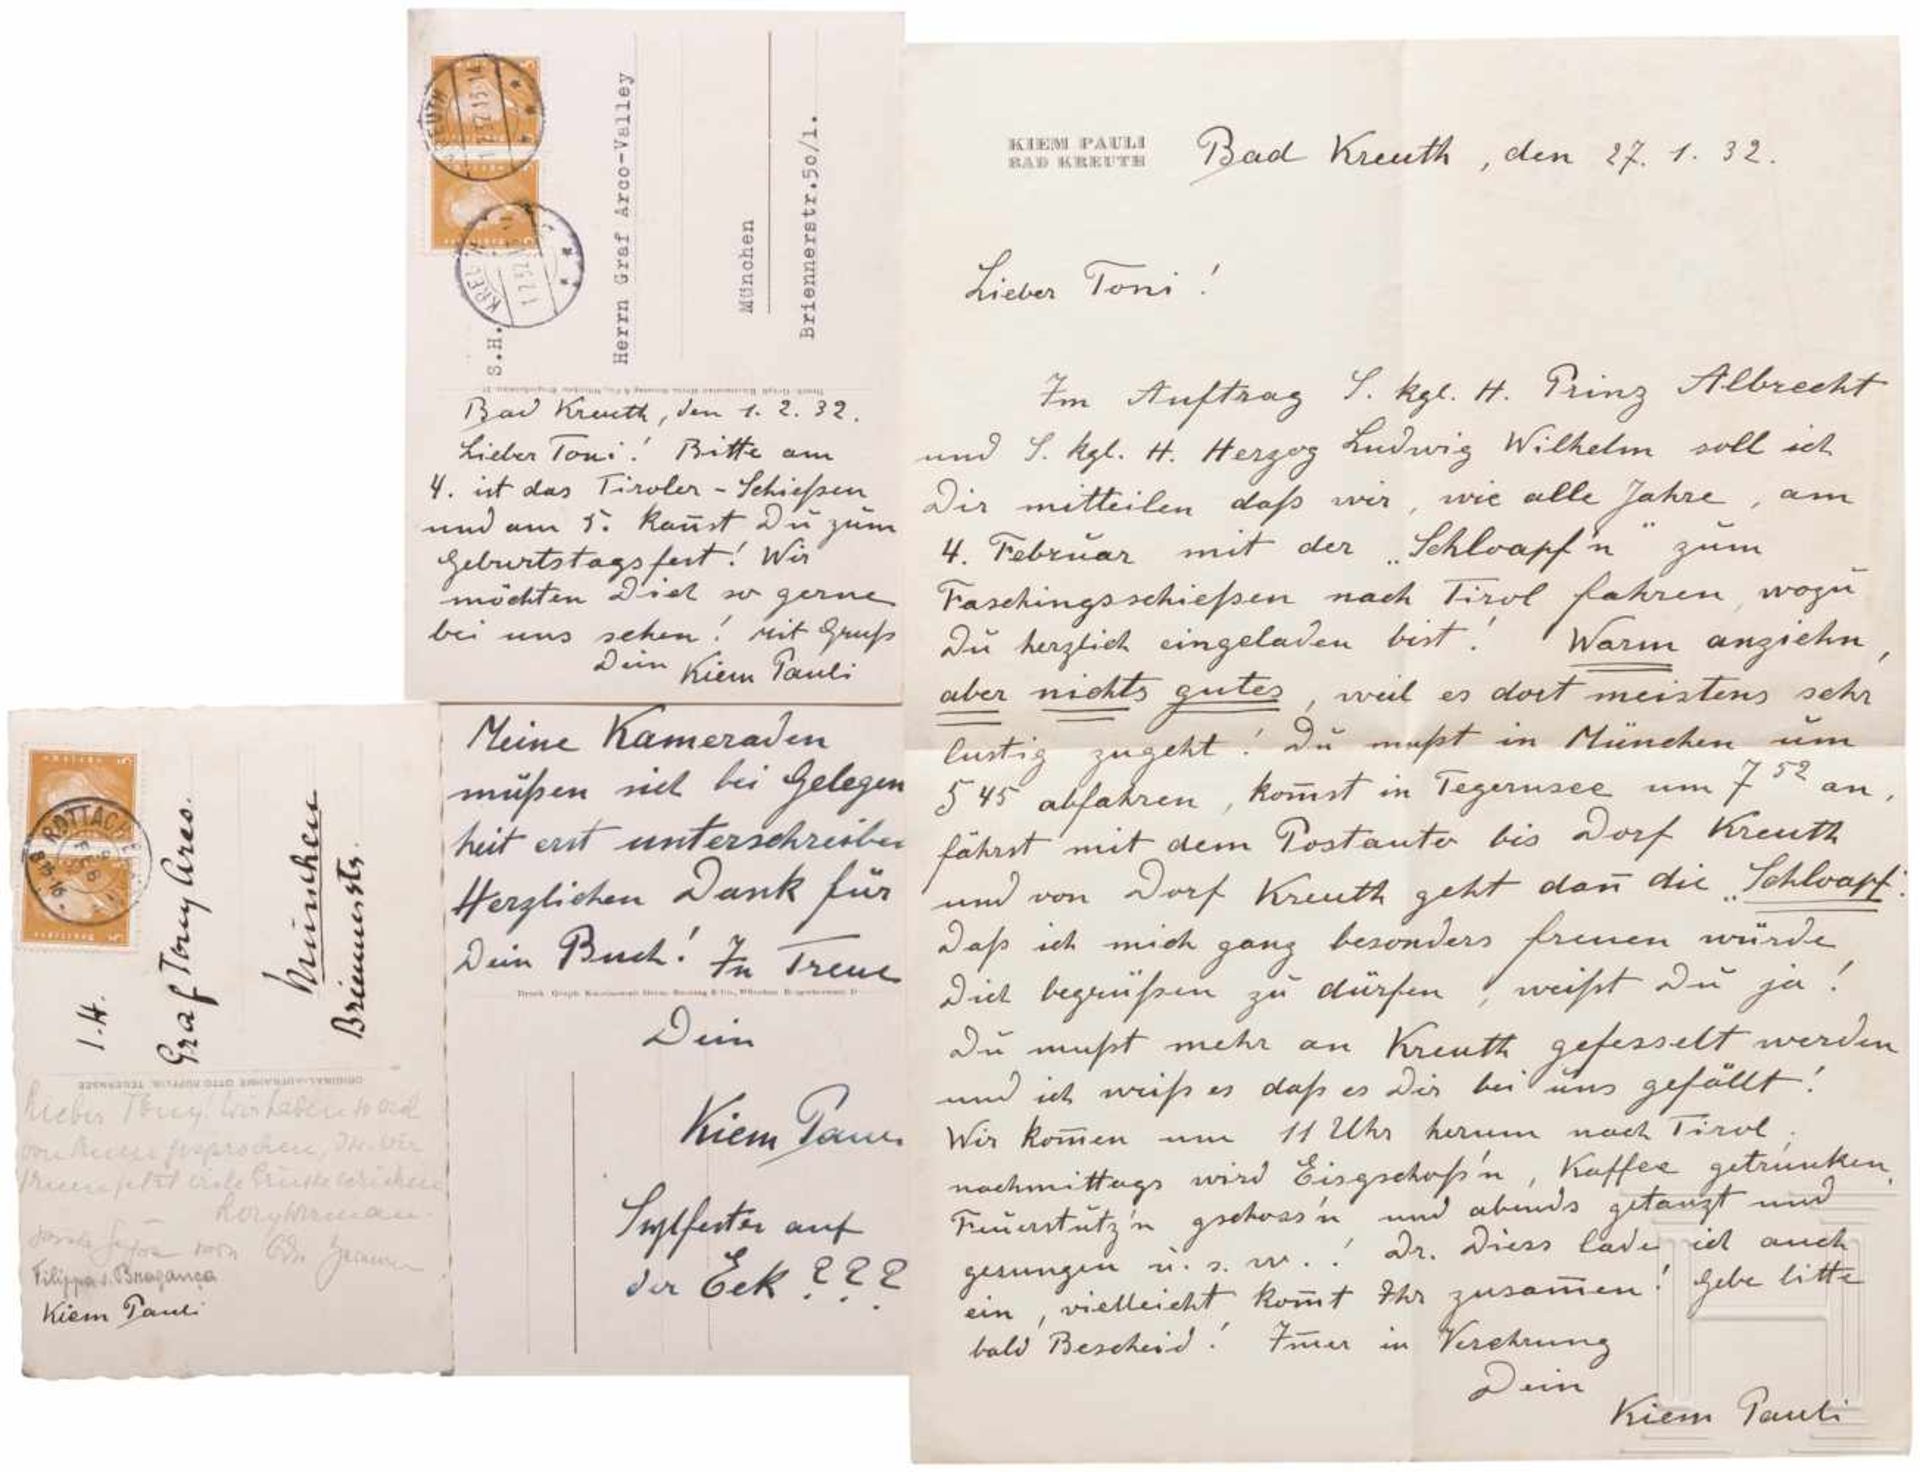 S.H.
Herrn Graf Arco-Valley
München
Briennerstr.50/1.
Bad Kreuth, den 1. 2. 32.
Lieber Toni! Bitte am
4. ist das Tiroler-Schießen
und am 5. kañst Du zum
Geburtstagsfest! Wir
möchten Dich so gerne
bei uns sehen! Mit Gruß
Dein Kiem Pauli
KIEM PAULI
BAD KREUTH
Bad Kreuth, den 27. 1. 32.
Lieber Toni!
Im Auftrag S. kgl. H. Prinz Albrecht
und S. kgl. H. Herzog Ludwig Wilhelm soll ich
Dir mitteilen daß wir, wie alle Jahre, am
4. Februar mit der „Schloapf'n" zum
Faschingsschießen nach Tirol fahren, wozu
Du herzlich eingeladen bist! Warm anziehn,
aber nichts gutes, weil es dort meistens sehr
lustig zugeht! Du mußt in München um
5 45 abfahren, kom̄st in Tegernsee um 7 52 an,
fährst mit dem Postauto bis Dorf Kreuth
und von Dorf Kreuth geht dañ die „Schloapf".
Daß ich mich ganz besonders freuen würde
Dich begrüßen zu dürfen, weißt Du ja!
Du mußt mehr an Kreuth gefesselt werden
und ich weiß es daß es Dir bei uns gefällt!
Wir kom̄en um 11 Uhr herum nach Tirol,
nachmittags wird Eisgschoß'n, Kaffee getrunken,
Feuerstutz'n gschoss'n und abends getanzt und
gesungen u. s. w.! Dr. Diess lade ich auch
ein, vielleicht kom̄t Ihr zusam̄en! Gebe bitte
bald Bescheid! Im̄er in Verehrung
Dein
Kiem Pauli
Meine Kameraden
müßen sich bei Gelegen
heit erst unterschreiben
Herzlichen Dank für
Dein Buch! In Treue
Dein
Kiem Pauli
Sylfester auf
der Eck ? ? ?
ROTTACH
Graf Tony Arco.
München
Briennerstr.
ORIGINAL-AUFNAHME OTTO TEGERNSEE
Lieber Tony! Wir haben so viel
von gesprochen, wir
jetzt viele Grüsse schicken
von
Filippa v. Bragança
Kiem Pauli